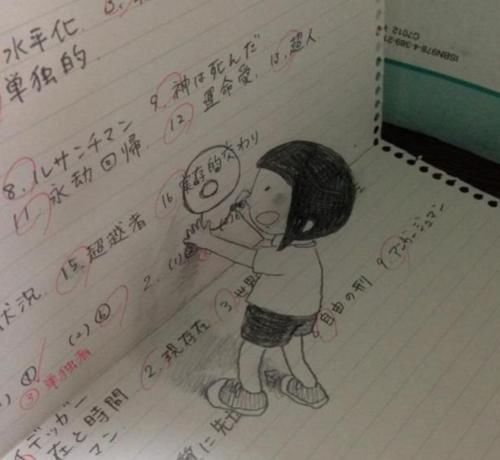 水平化
単独的
9. 神は死んだ
13. 超人
8. ルサンチマン
12. 運命愛
11. 永劫回帰
16. 実存的交わり
15. 超越者
状況
(2) ⓑ
2.
(1)
③ 単独者
2. 現存在
3. 世界
自由の刑
9. アンガージュマン
デッガー
在と時間
マン
に先
ISBN978-4-389-21
C7012